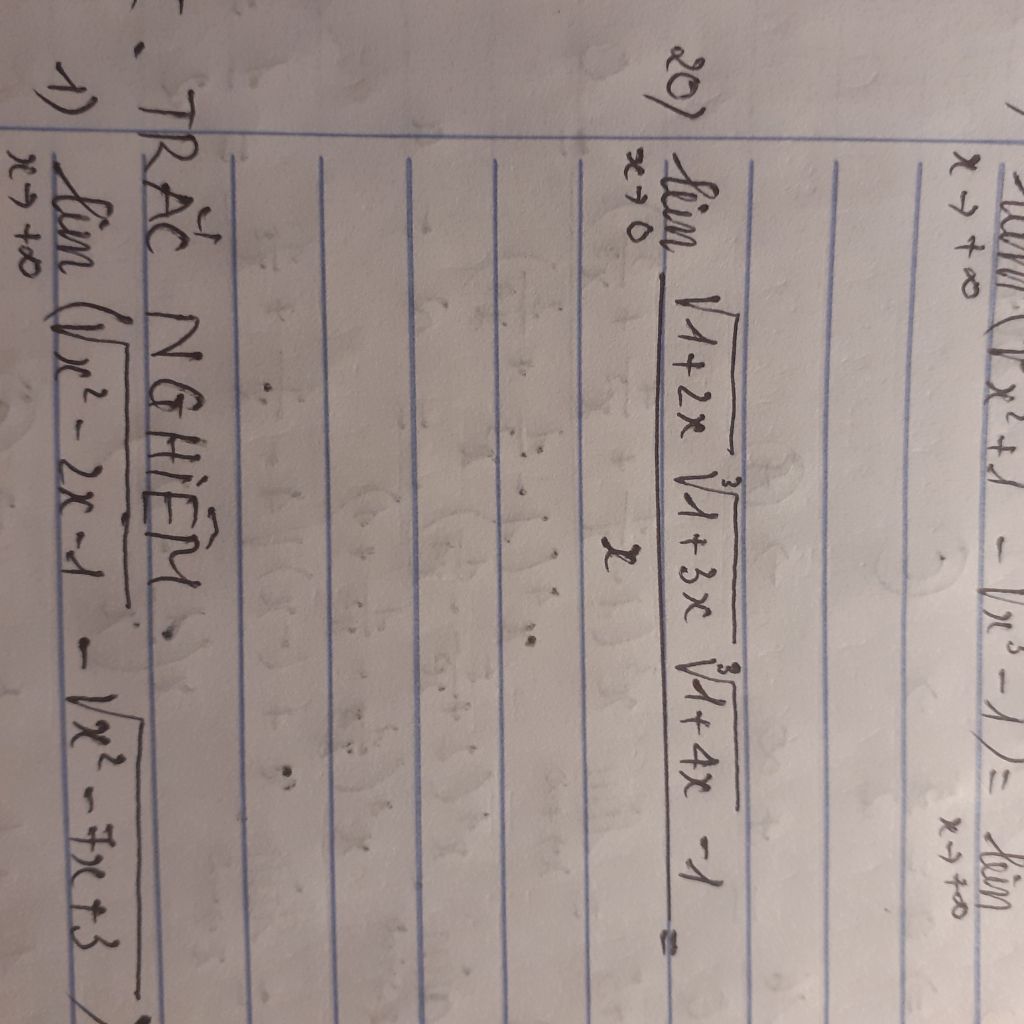 lim (√x² + 1 - √x³ - 1) = lim
x → +∞ x → +∞
20) lim √1 + 2x ³√1 + 3x ³√1 + 4x - 1 =
x → 0 x
. TRẮC NGHIỆM.
1) lim (√x² - 2x - 1 - √x² - 7x + 3)
x → +∞